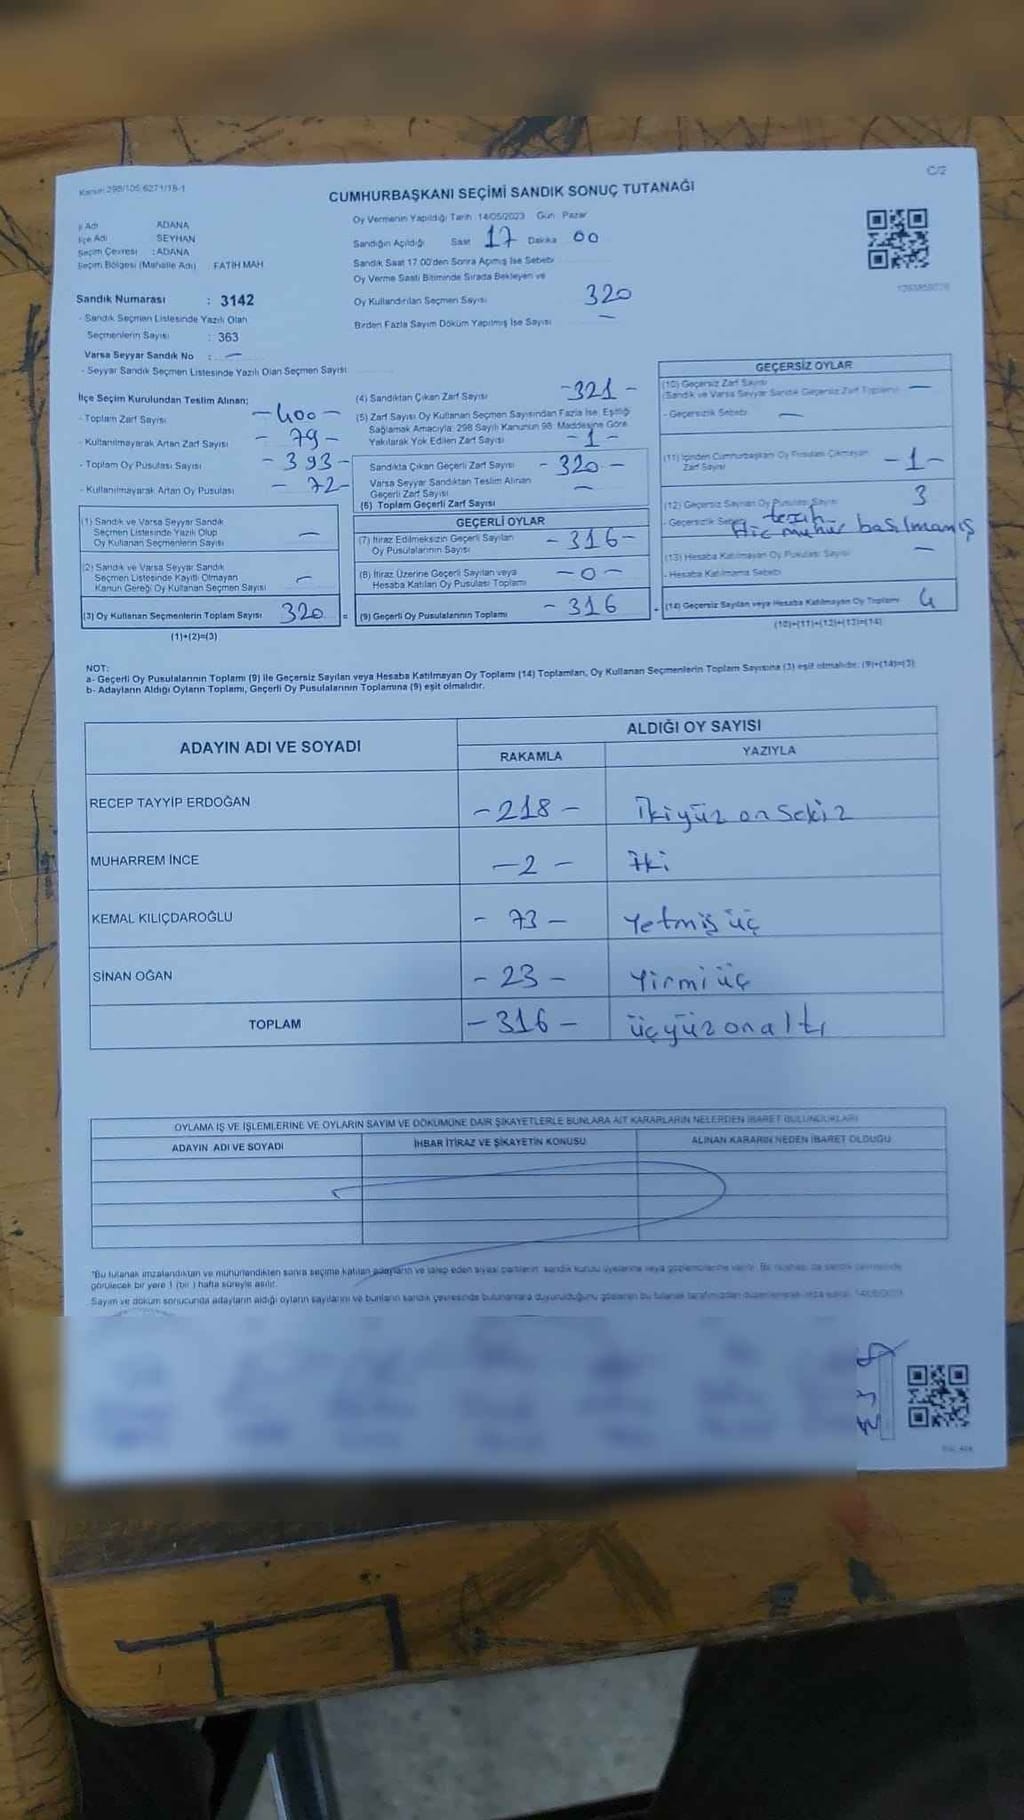 Kanun: 298/105, 6271/18-1
C/2
CUMHURBAŞKANI SEÇİMİ SANDIK SONUÇ TUTANAĞI
İl Adı ADANA
İlçe Adı SEYHAN
Seçim Çevresi : ADANA
Seçim Bölgesi (Mahalle Adı) FATİH MAH
Sandık Numarası : 3142
- Sandık Seçmen Listesinde Yazılı Olan
Seçmenlerin Sayısı : 363
Varsa Seyyar Sandık No : —
- Seyyar Sandık Seçmen Listesinde Yazılı Olan Seçmen Sayısı
Oy Vermenin Yapıldığı Tarih : 14/05/2023 Gün : Pazar
Sandığın Açıldığı Saat 17 Dakika 00
Sandık Saat 17.00'den Sonra Açılmış İse Sebebi
Oy Verme Saati Bitiminde Sırada Bekleyen ve
Oy Kullandırılan Seçmen Sayısı 320
Birden Fazla Sayım Döküm Yapılmış İse Sayısı —
İlçe Seçim Kurulundan Teslim Alınan;
- Toplam Zarf Sayısı - 400 -
- Kullanılmayarak Artan Zarf Sayısı - 79 -
- Toplam Oy Pusulası Sayısı - 393 -
- Kullanılmayarak Artan Oy Pusulası - 72 -
(1) Sandık ve Varsa Seyyar Sandık
Seçmen Listesinde Yazılı Olup
Oy Kullanan Seçmenlerin Sayısı —
(2) Sandık ve Varsa Seyyar Sandık
Seçmen Listesinde Kayıtlı Olmayan
Kanun Gereği Oy Kullanan Seçmen Sayısı —
(3) Oy Kullanan Seçmenlerin Toplam Sayısı 320 =
(1)+(2)=(3)
(4) Sandıktan Çıkan Zarf Sayısı - 321 -
(5) Zarf Sayısı Oy Kullanan Seçmen Sayısından Fazla İse, Eşitliği
Sağlamak Amacıyla; 298 Sayılı Kanunun 98. Maddesine Göre
Yakılarak Yok Edilen Zarf Sayısı - 1 -
Sandıkta Çıkan Geçerli Zarf Sayısı - 320 -
Varsa Seyyar Sandıktan Teslim Alınan
Geçerli Zarf Sayısı —
(6) Toplam Geçerli Zarf Sayısı
GEÇERLİ OYLAR
(7) İtiraz Edilmeksizin Geçerli Sayılan
Oy Pusulalarının Sayısı - 316 -
(8) İtiraz Üzerine Geçerli Sayılan veya
Hesaba Katılan Oy Pusulası Toplamı - 0 -
(9) Geçerli Oy Pusulalarının Toplamı - 316
GEÇERSİZ OYLAR
(10) Geçersiz Zarf Sayısı
(Sandık ve Varsa Seyyar Sandık Geçersiz Zarf Toplamı) —
- Geçersizlik Sebebi —
(11) İçinden Cumhurbaşkanı Oy Pusulası Çıkmayan
Zarf Sayısı - 1 -
(12) Geçersiz Sayılan Oy Pusulası Sayısı 3
- Geçersizlik Sebebi
Hiç mühür basılmamış
(13) Hesaba Katılmayan Oy Pusulası Sayısı —
- Hesaba Katılmama Sebebi
(14) Geçersiz Sayılan veya Hesaba Katılmayan Oy Toplamı 4
(10)+(11)+(12)+(13)=(14)
NOT:
a- Geçerli Oy Pusulalarının Toplamı (9) ile Geçersiz Sayılan veya Hesaba Katılmayan Oy Toplamı (14) Toplamları, Oy Kullanan Seçmenlerin Toplam Sayısına (3) eşit olmalıdır. (9)+(14)=(3)
b- Adayların Aldığı Oyların Toplamı, Geçerli Oy Pusulalarının Toplamına (9) eşit olmalıdır.
ADAYIN ADI VE SOYADI ALDIĞI OY SAYISI
RAKAMLA YAZIYLA
RECEP TAYYİP ERDOĞAN - 218 - İkiyüz on sekiz
MUHARREM İNCE - 2 - İki
KEMAL KILIÇDAROĞLU - 73 - Yetmiş üç
SİNAN OĞAN - 23 - Yirmi üç
TOPLAM - 316 - üçyüz onaltı
OYLAMA İŞ VE İŞLEMLERİNE VE OYLARIN SAYIM VE DÖKÜMÜNE DAİR ŞİKAYETLERLE BUNLARA AİT KARARLARIN NELERDEN İBARET BULUNDUKLARI
ADAYIN ADI VE SOYADI İHBAR İTİRAZ VE ŞİKAYETİN KONUSU ALINAN KARARIN NEDEN İBARET OLDUĞU
*Bu tutanak imzalandıktan ve mühürlendikten sonra seçime katılan adayların ve talep eden siyasi partilerin, sandık kurulu üyelerine veya gözlemcilerine verilir. Bir nüshası da sandık çevresinde
görülecek bir yere 1 (bir) hafta süreyle asılır.
Sayım ve döküm sonucunda adayların aldığı oyların sayılarını ve bunların sandık çevresinde bulunanlara duyurulduğunu gösteren bu tutanak tarafımızdan düzenlenerek imza edildi. 14/05/2023